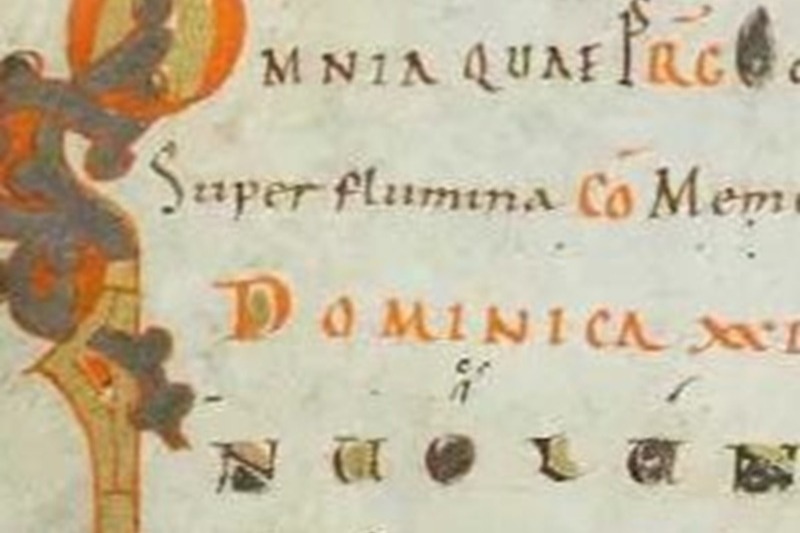 OMNIA QUAE PS RG O
Super flumina CO Mem
DOMINICA XXI
N UOLUN